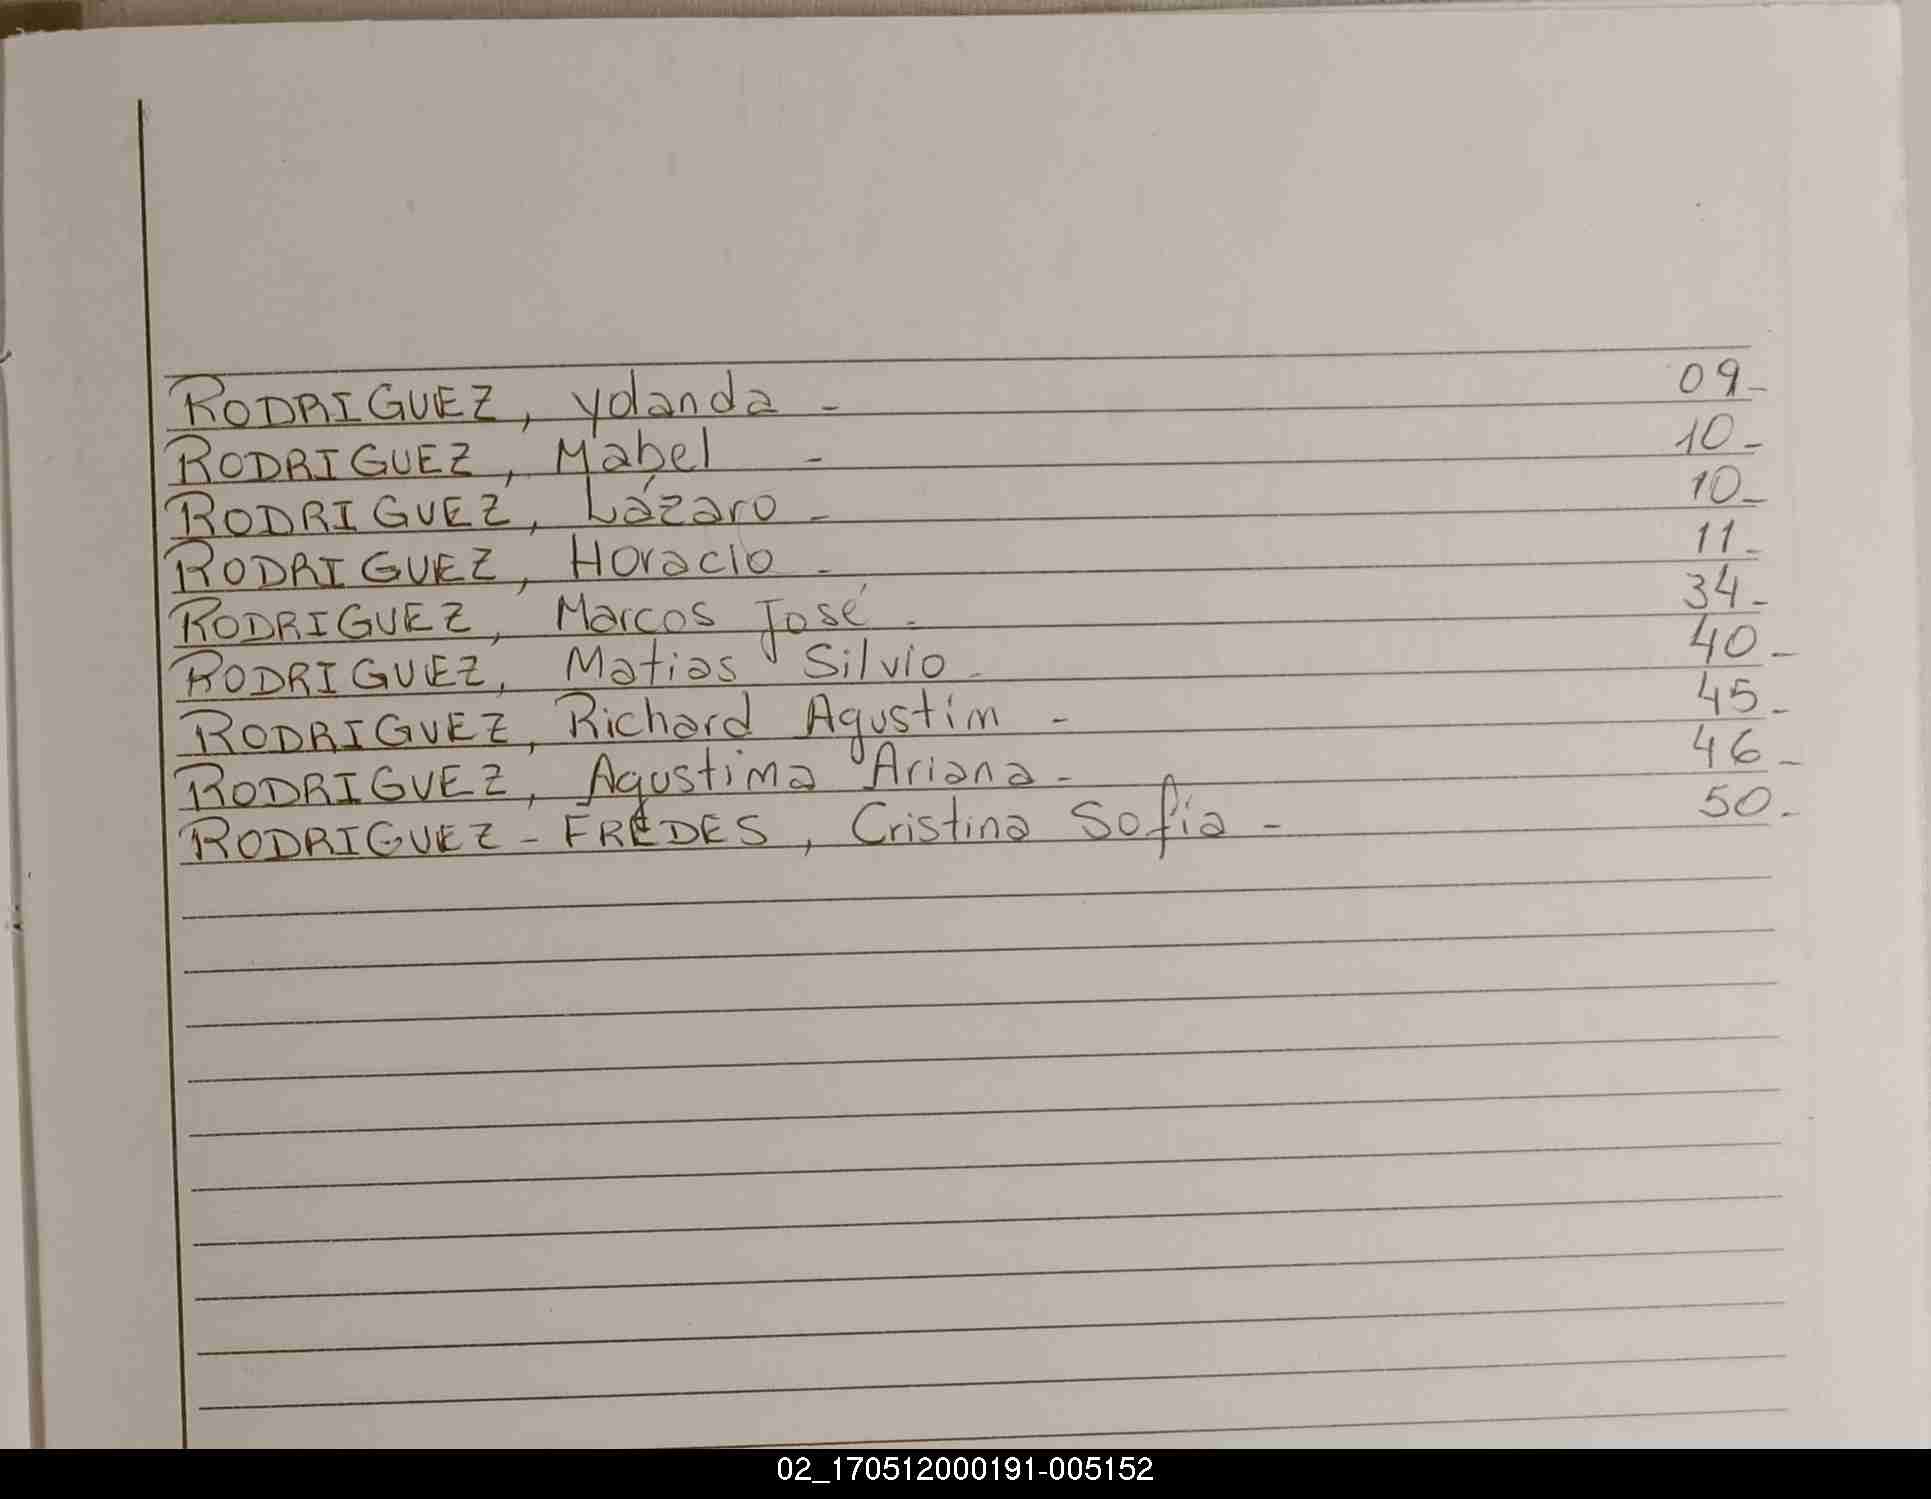 RODRIGUEZ, Yolanda - 09-
RODRIGUEZ, Mabel - 10-
RODRIGUEZ, Lázaro - 10-
RODRIGUEZ, Horacio - 11-
RODRIGUEZ, Marcos José - 34-
RODRIGUEZ, Matias Silvio - 40-
RODRIGUEZ, Richard Agustin - 45-
RODRIGUEZ, Agustina Ariana - 46-
RODRIGUEZ - FREDES, Cristina Sofía - 50-
02_170512000191-005152